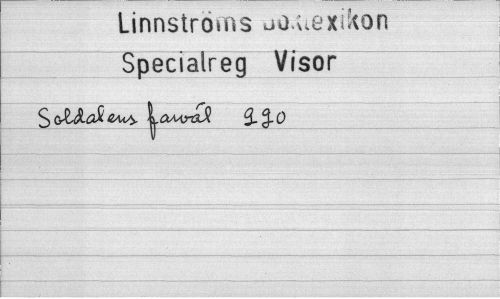 Linnströms Boklexikon
Specialreg Visor
Soldatens farväl 990